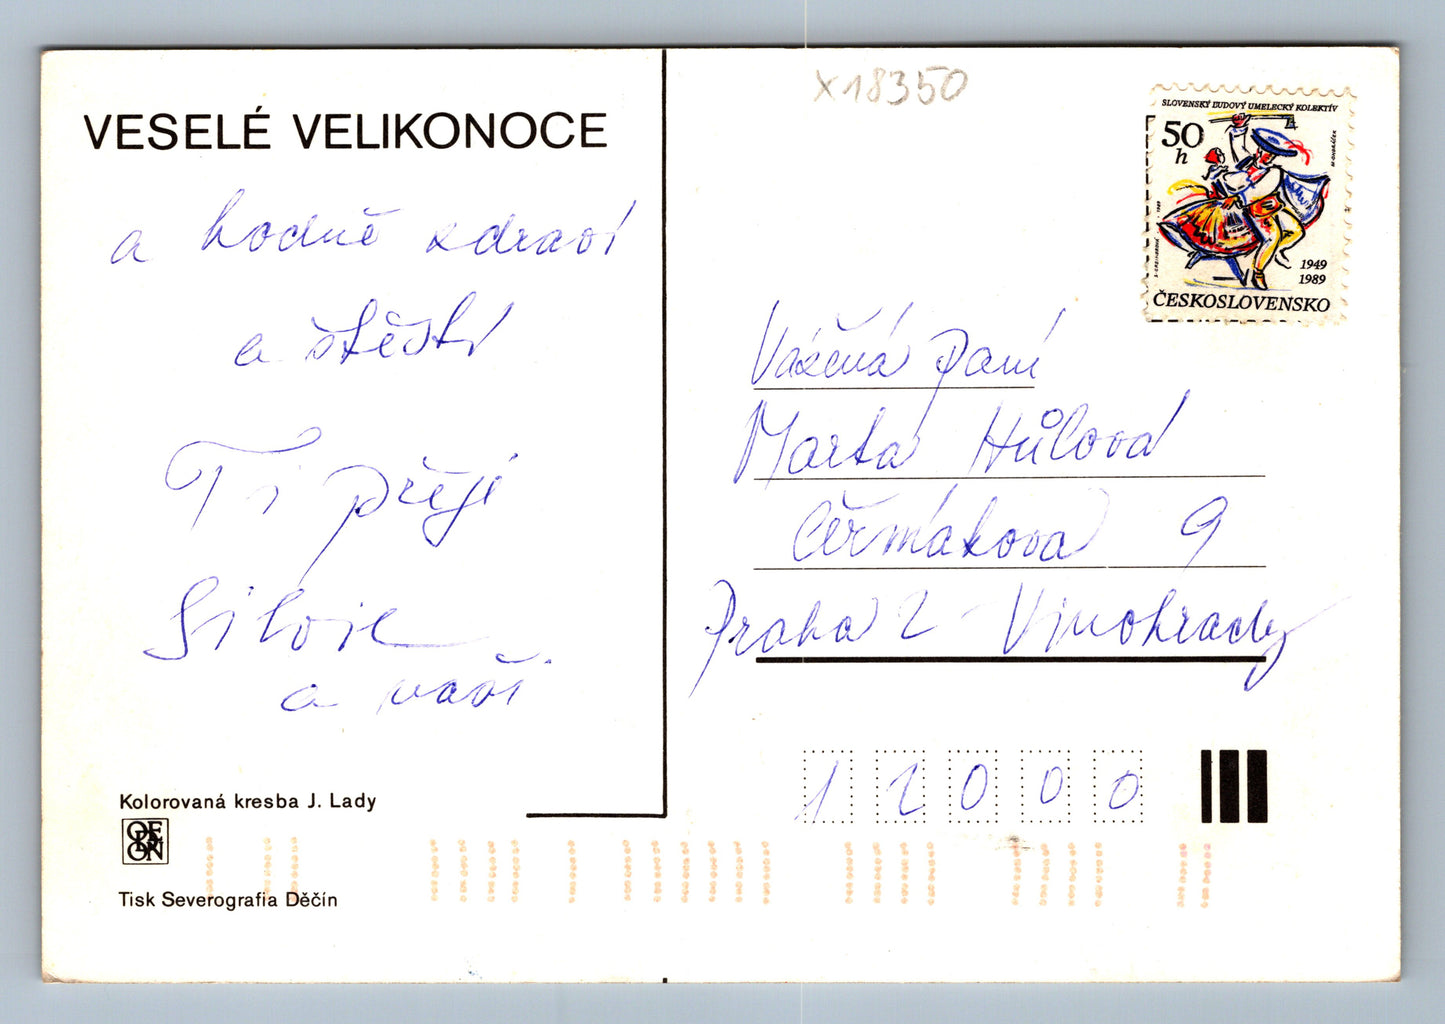 VESELÉ VELIKONOCE
a hodně zdraví
a štěstí
Ti přeji
Silvie
a naši
Kolorovaná kresba J. Lady
ODEON
Tisk Severografia Děčín
X18350
SLOVENSKÝ ĽUDOVÝ UMELECKÝ KOLEKTÍV
50
h
1949
1989
ČESKOSLOVENSKO
Vážená Paní
Marta Hůlová
Čermákova 9
Praha 2 - Vinohrady
12000